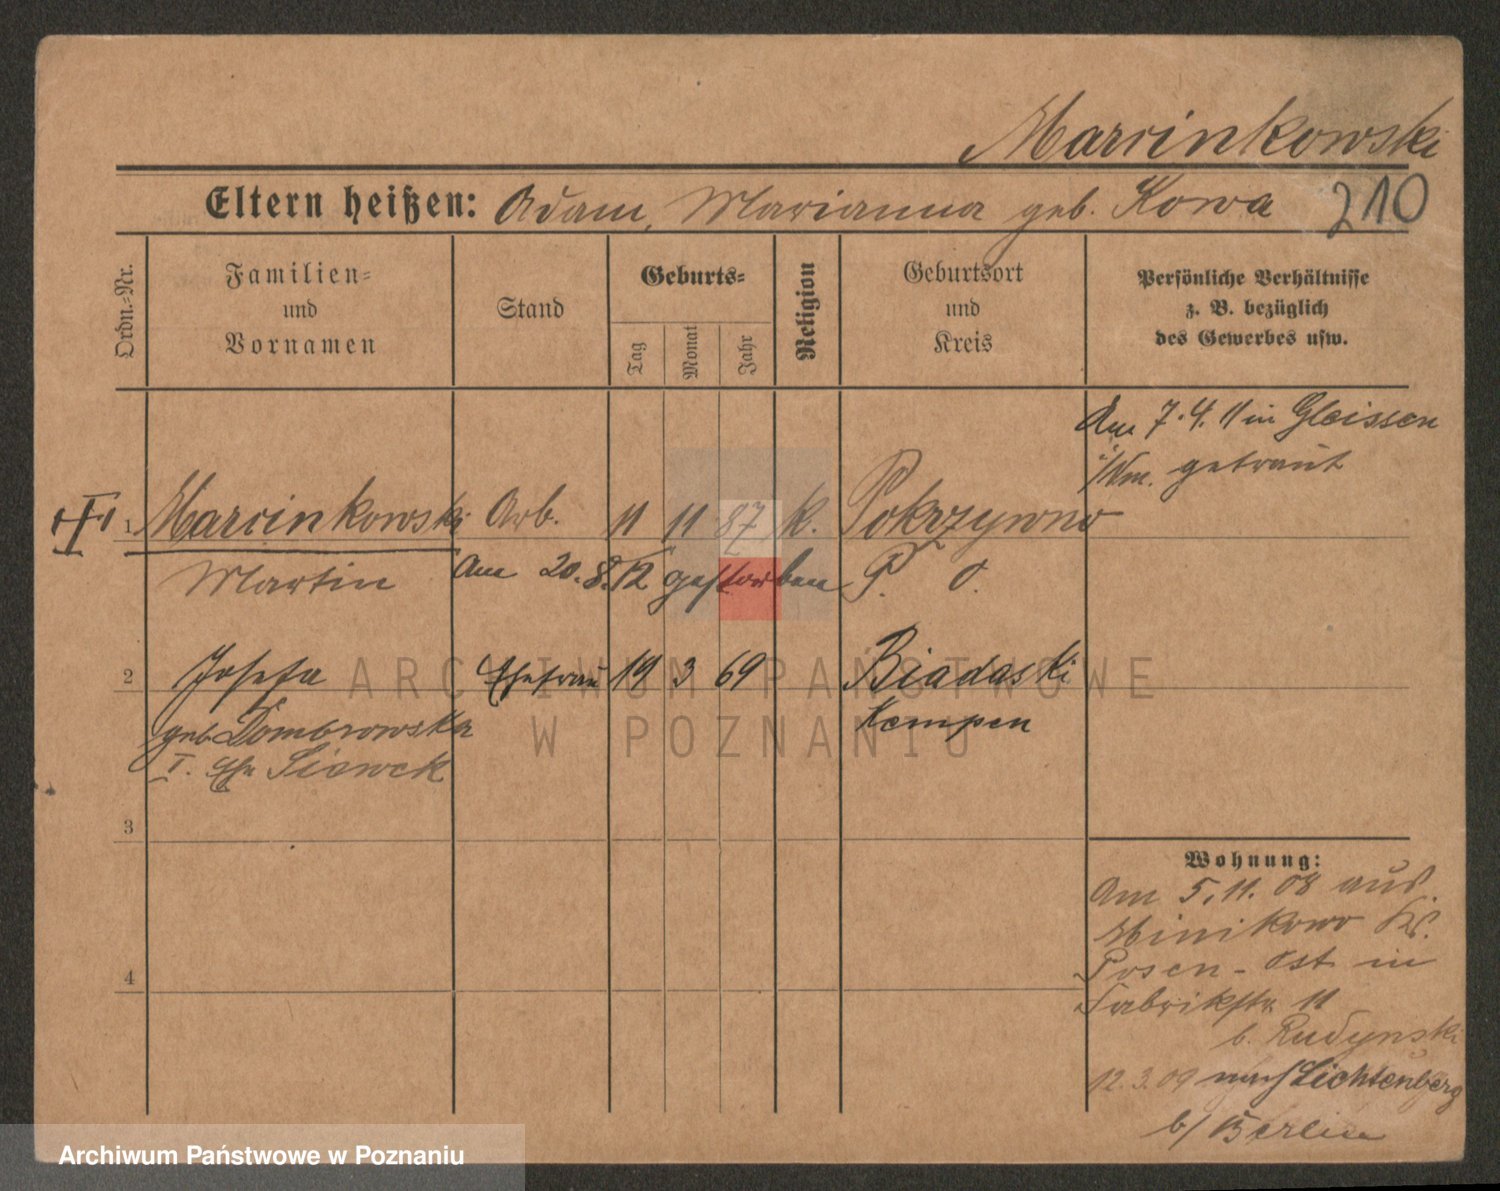 Marcinkowski
Eltern heißen: Adam, Marianna geb. Kowa 210
Ordn.-Nr.
Familien-
und
Vornamen
Stand
Geburts-
Tag
Monat
Jahr
Religion
Geburtsort
und
Kreis
Persönliche Verhältnisse
z. B. bezüglich
des Gewerbes usw.
Am 7.4.11 in Gleissen
getraut
1 Marcinkowski Arb. 11 11 87 k. Pokrzywno
Martin Am 20.8.12 gestorben P. O.
2 Josefa Ehefrau 19 3 69 Biadaski
geb. Dombrowska Kempen
I. Ehe Siewek
3
4
Wohnung:
Am 5.11.08 aus
Minikowo Kr.
Posen-Ost in
Fabrikstr. 11
b. Rudynski
12.3.09 nach Lichtenberg
b/ Berlin
ARCHIWUM PAŃSTWOWE
W POZNANIU
Archiwum Państwowe w Poznaniu